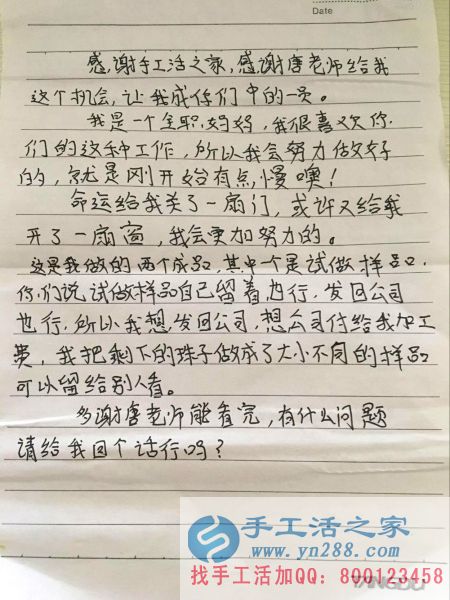 Date
感谢手工活之家,感谢唐老师给我
这个机会,让我成你们中的一员。
我是一个全职妈妈,我很喜欢你
们的这种工作,所以我会努力做好
的,就是刚开始有点慢噢!
命运给我关了一扇门,或许又给我
开了一扇窗,我会更加努力的。
这是我做的两个成品,其中个是试做样品,
你们说试做样品自己留着也行,发回公司
也行,所以我想发回公司,想公司付给我加工
费,我把剩下的珠子做成了大小不同的样品
可以留给别人看。
多谢唐老师能看完,有什么问题
请给我回个话行吗?
手工活之家
www.yn288.com
找手工活加QQ:800123458